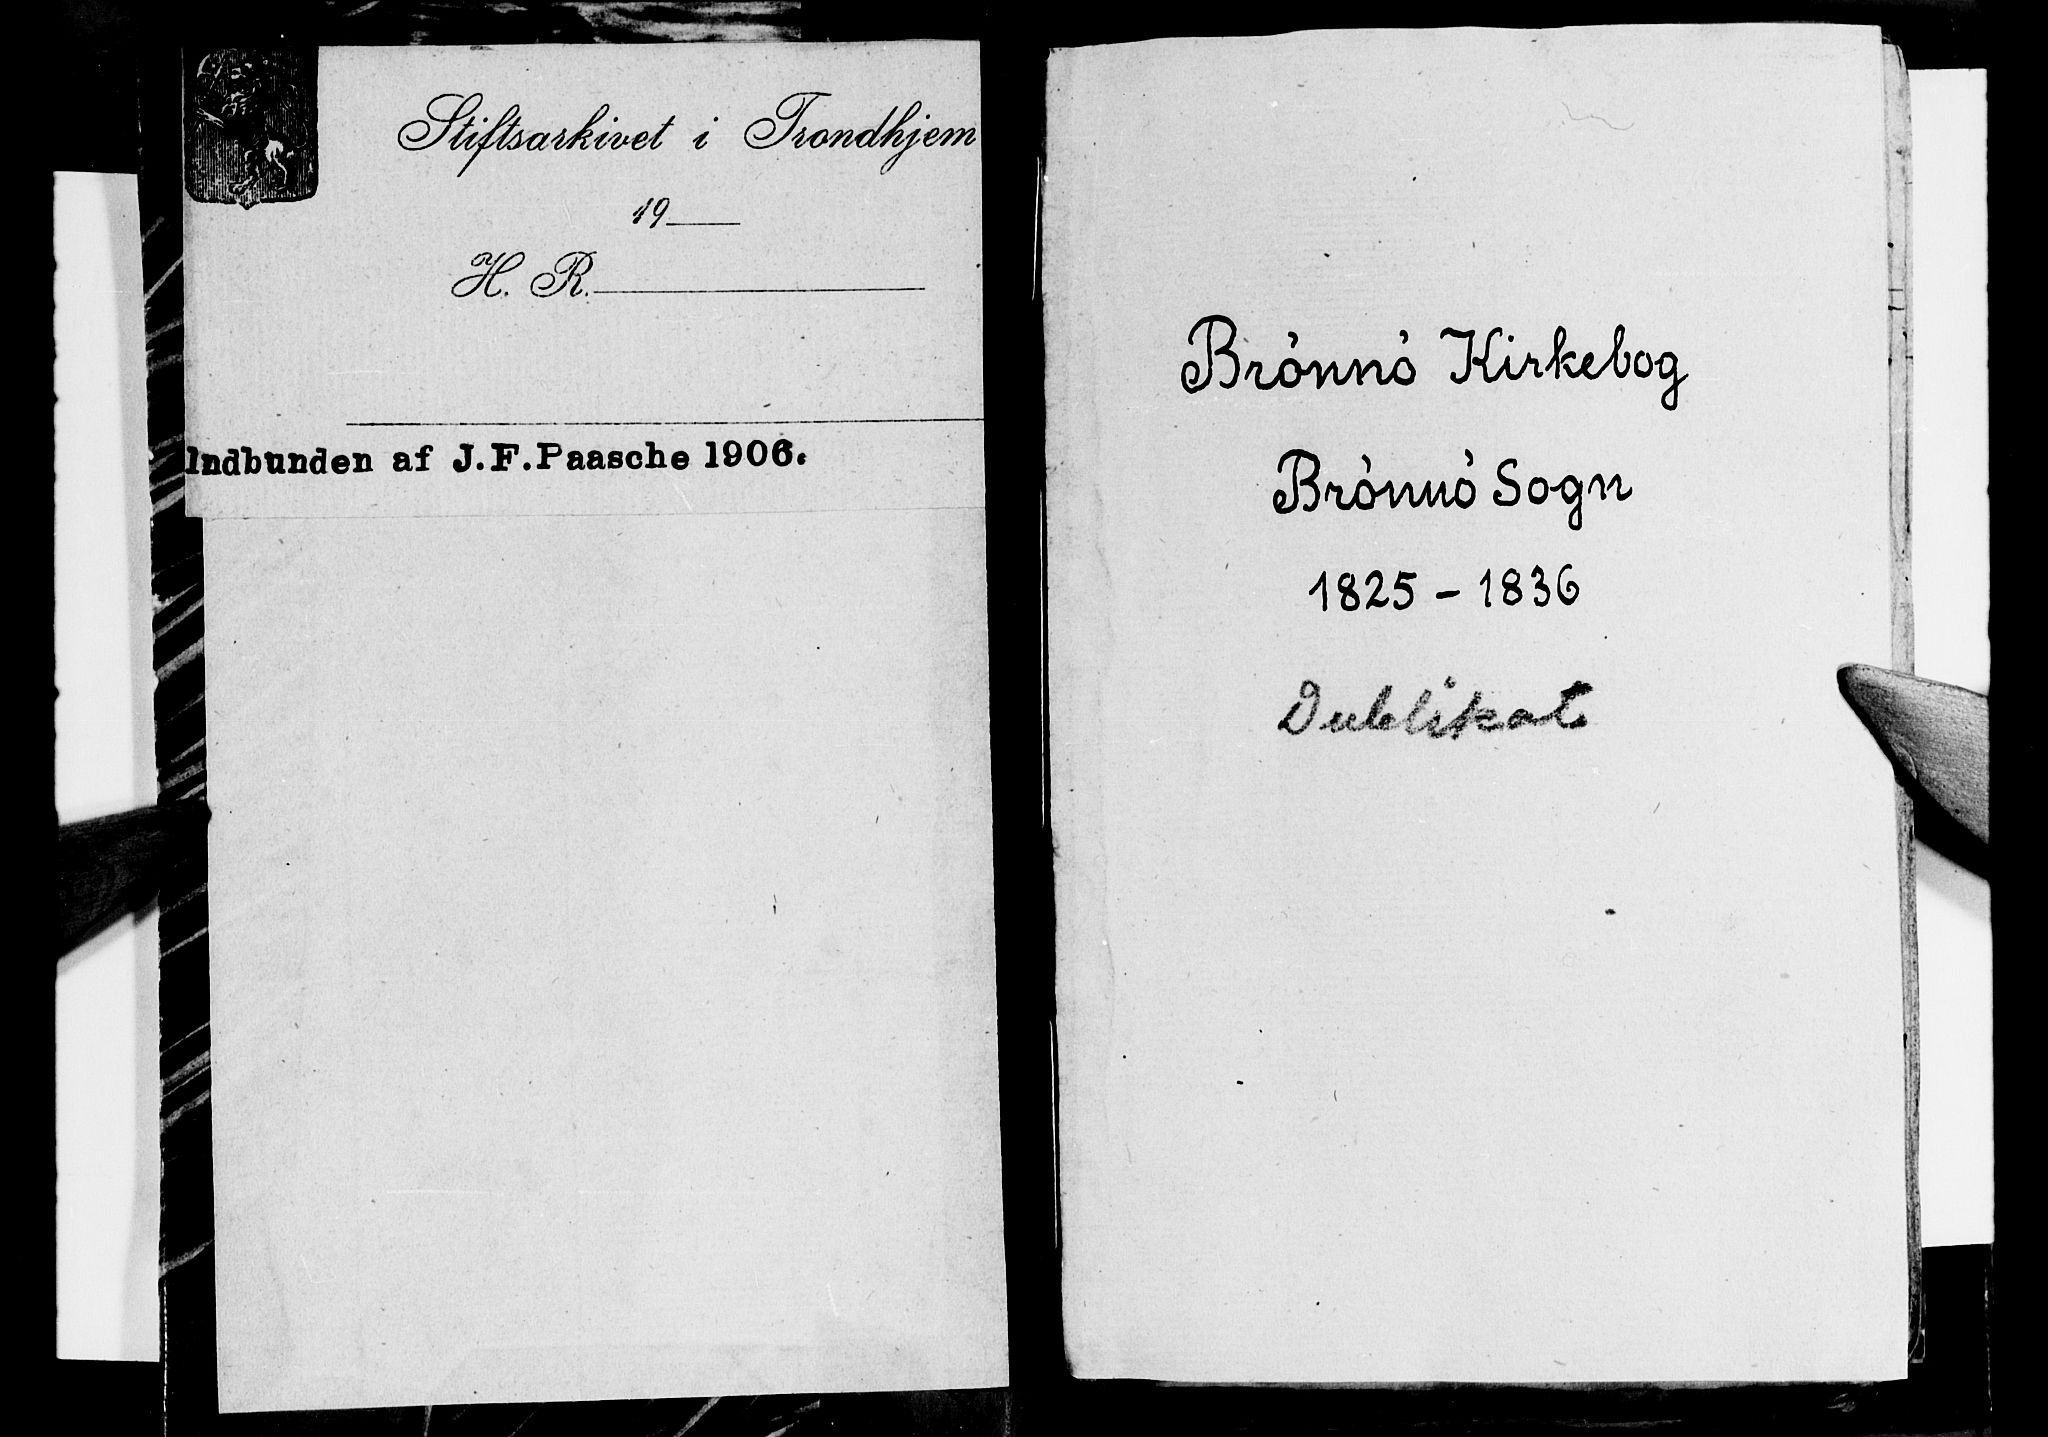 Stiftsarkivet i Trondhjem
19
H. R.
Indbunden af J.F.Paasche 1906.
Brónnó Kirkebog
Brónnó Sogn
1825 – 1836
Dublikat